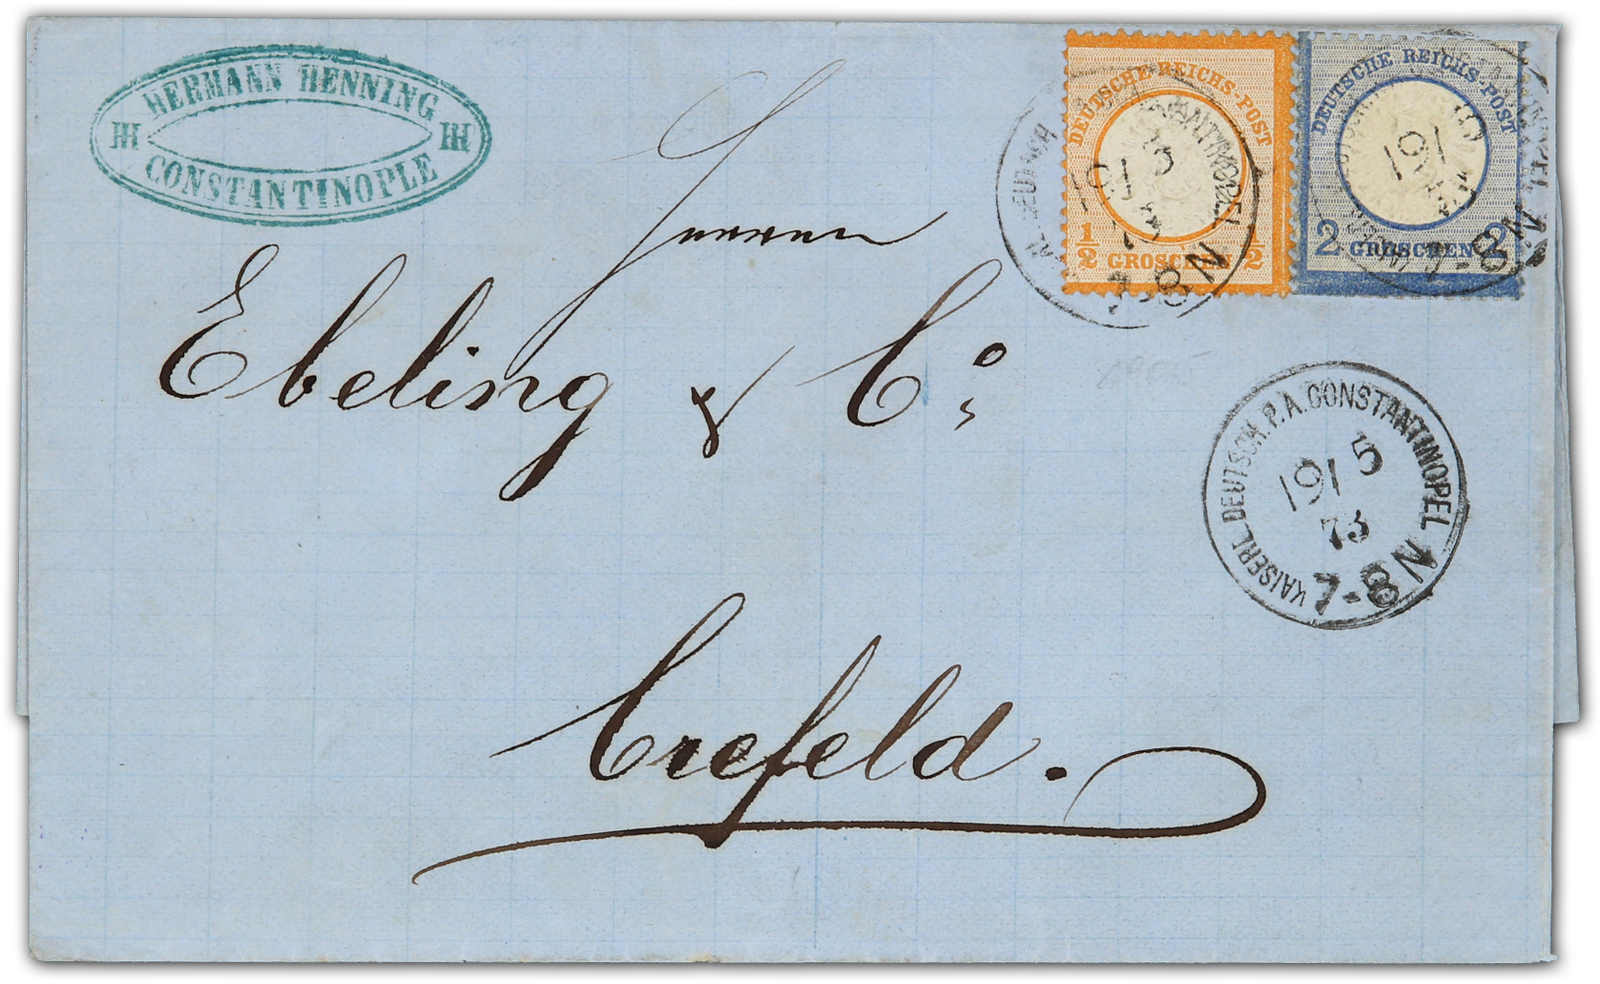 HERMANN HENNING
HH HH
CONSTANTINOPLE
DEUTSCHE REICHS-POST
1/2 GROSCHEN 1/2
DEUTSCHE REICHS-POST
2 GROSCHEN 2
Herren
Ebeling & Co.
Crefeld.
KAISERL. DEUTSCH. P. A. CONSTANTINOPEL
19 5
73
7-8 N